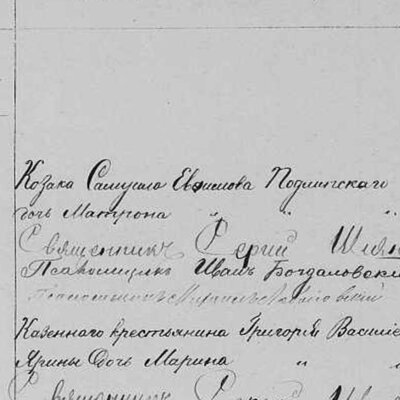 Козака Самуила Евѳимова Подлипскаго
дочь Матрона " " "
Священникъ Сергий
Псаломщикъ Иванъ Богдановски
Казеннаго крестьянина Григорія Василіе
Ярины дочь Марина "
Священникъ Сергий